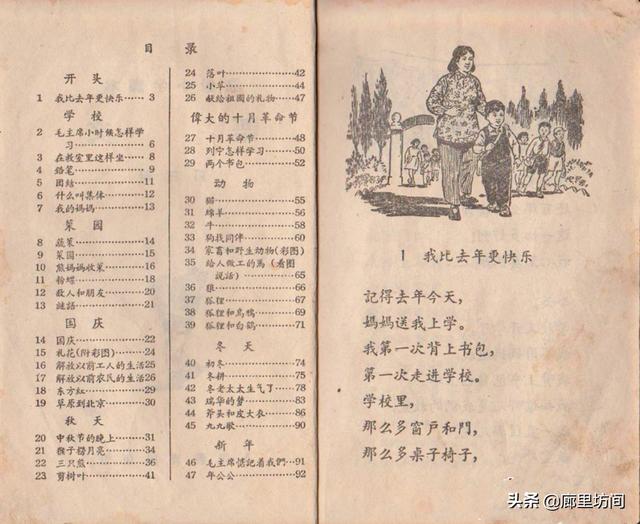 目 录
开头
1 我比去年更快乐……3
学校
2 毛主席小时候怎样学
习……6
3 在教室里这样坐……8
4 鉛笔……9
5 团結……11
6 什么叫集体……12
7 我的媽媽……13
菜园
8 蔬菜……14
9 菜园……15
10 熊媽媽收菜……16
11 粉蝶……18
12 敌人和朋友……20
13 謎語……21
国庆
14 国庆……22
15 礼花(附彩图)……24
16 解放以前工人的生活25
17 解放以前农民的生活26
18 东方紅……29
19 草原到北京……30
秋天
20 中秋节的晚上……31
21 猴子捞月亮……34
22 三只熊……36
23 剪树叶……41
24 落叶……42
25 小草……44
26 献給祖国的礼物……47
偉大的十月革命节
27 十月革命节……48
28 列宁怎样学习……50
29 两个书包……52
动物
30 猫……55
31 綿羊……56
32 牛……58
33 狗找同伴……60
34 家畜和野生动物(彩图)
35 給人做工的馬(看图
說話)……65
36 狼……66
37 狐狸……68
38 狐狸和烏鴉……69
39 狐狸和白鹤……71
冬天
40 初冬……74
41 冬耕……75
42 冬老太太生气了……78
43 瑞华的梦……83
44 斧头和皮大衣……86
45 九九歌……90
新年
46 毛主席惦記着我們…91
47 年公公……92
1 我比去年更快乐
記得去年今天，
媽媽送我上学。
我第一次背上书包，
第一次走进学校。
学校里，
那么多窗戶和門，
那么多桌子椅子，
头条 @廊里坊间